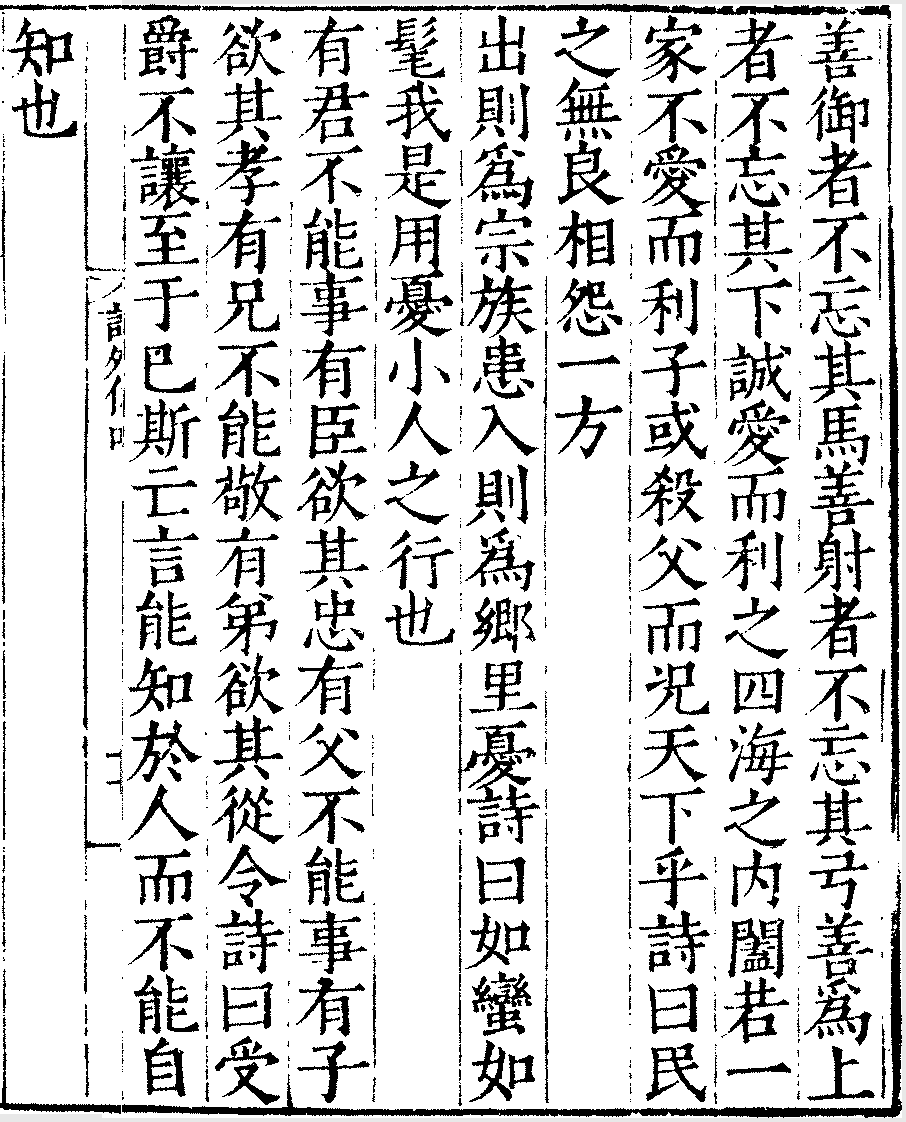 善御者不忘其馬善射者不忘其弓善爲上
者不忘其下誠愛而利之四海之内闔若一
家不愛而利子或殺父而况天下乎詩曰民
之無良相怨一方
出則爲宗族患入則爲鄉里憂詩曰如蠻如
髦我是用憂小人之行也
有君不能事有臣欲其忠有父不能事有子
欲其孝有兄不能敬有弟欲其從令詩曰受
爵不讓至于巳斯亡言能知於人而不能自
知也